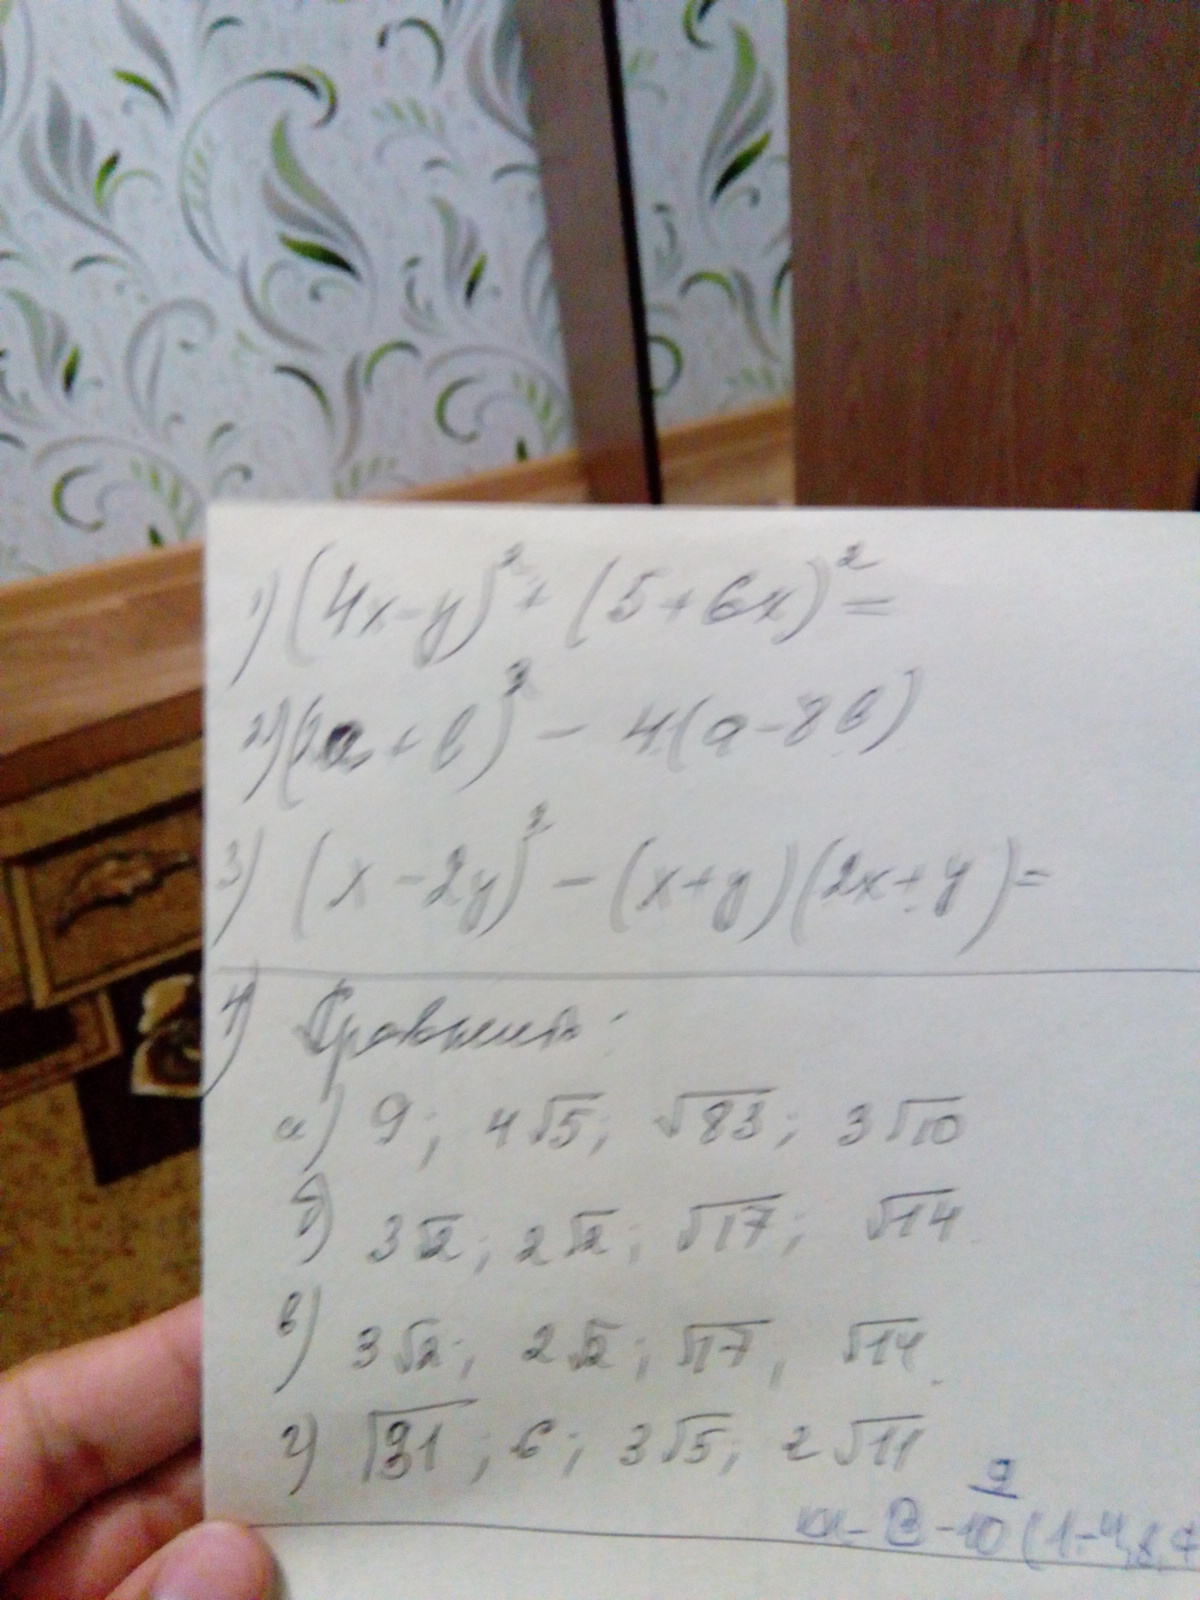 1) (4x-y)² + (5+6x)² =
2) (2a+b)² - 4(a-8b)
3) (x-2y)² - (x+y)(2x+y)=
4) Сравнить:
а) 9; 4√5; √83; 3√10
б) 3√2; 2√2; √17; √14
в) 3√2; 2√2; √17; √14
г) √31; 6; 3√5; 2√11